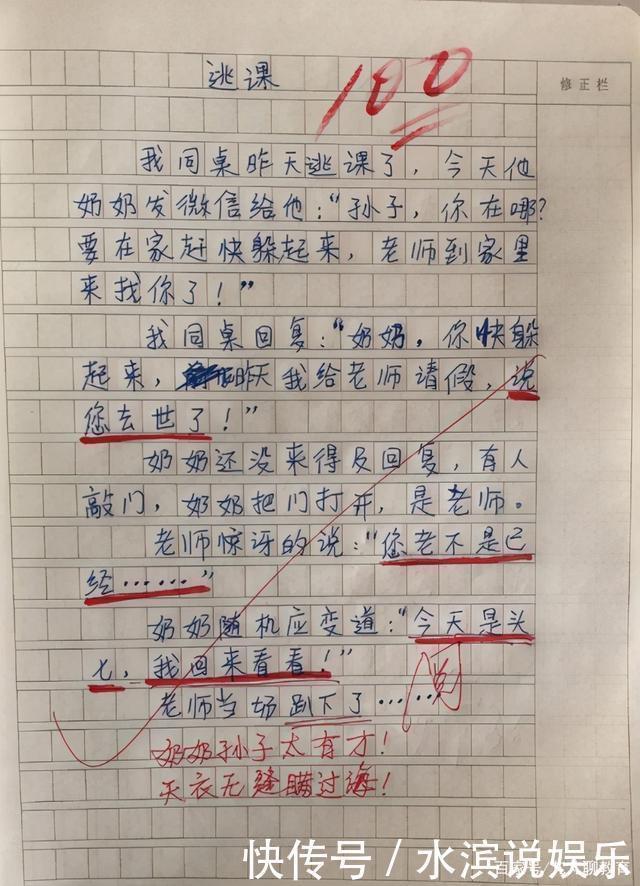 逃课
100
修正栏
我同桌昨天逃课了，今天他
奶奶发微信给他："孙子，你在哪？
要在家赶快躲起来，老师到家里
来找你了！"
我同桌回复："奶奶，你快躲
起来，昨天我给老师请假，说
您去世了！"
奶奶还没来得及回复，有人
敲门，奶奶把门打开，是老师。
老师惊讶的说："您老不是已
经……"
奶奶随机应变道："今天是头
七，我回来看看！"
老师当场趴下了……
阅
奶奶孙子太有才！
天衣无缝瞒过海！
快传号/水滨说娱乐